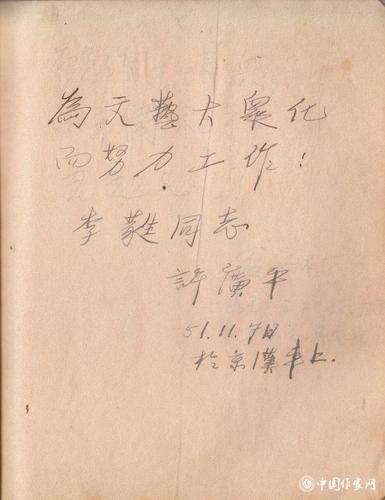 為文藝大眾化
而努力工作！
李蕤同志
許廣平
51.11.7日
於京漢車上.
中国作家网